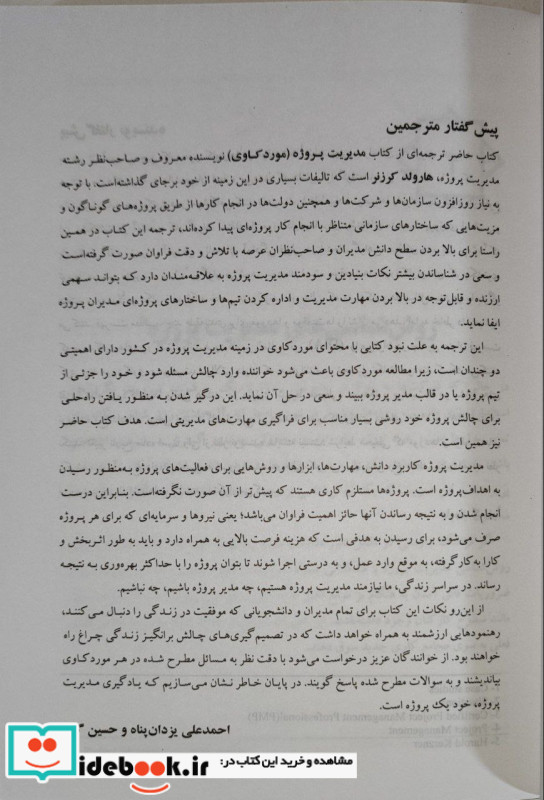 پیش گفتار مترجمین
کتاب حاضر ترجمه‌ای از کتاب مدیریت پروژه (موردکاوی) نویسنده معروف و صاحب‌نظر رشته
مدیریت پروژه، هارولد کرزنر است که تالیفات بسیاری در این زمینه از خود برجای گذاشته‌است. با توجه
به نیاز روزافزون سازمان‌ها و شرکت‌ها و همچنین دولت‌ها در انجام کارها از طریق پروژه‌های گوناگون و
مزیت‌هایی که ساختارهای سازمانی متناظر با انجام کار پروژه‌ای پیدا کرده‌اند، ترجمه این کتاب در همین
راستا برای بالا بردن سطح دانش مدیران و صاحب‌نظران عرصه با تلاش و دقت فراوان صورت گرفته‌است
و سعی در شناساندن بیشتر نکات بنیادین و سودمند مدیریت پروژه به علاقه‌مندان دارد که بتواند سهمی
ارزنده و قابل‌توجه در بالا بردن مهارت مدیریت و اداره کردن تیم‌ها و ساختارهای پروژه‌ای مدیران پروژه
ایفا نماید.
این ترجمه به علت نبود کتابی با محتوای موردکاوی در زمینه مدیریت پروژه در کشور دارای اهمیتی
دو چندان است، زیرا مطالعه موردکاوی باعث می‌شود خواننده وارد چالش مسئله شود و خود را جزئی از
تیم پروژه یا در قالب مدیر پروژه ببیند و سعی در حل آن نماید. این درگیر شدن به منظور یافتن راه‌حلی
برای چالش پروژه خود روشی بسیار مناسب برای فراگیری مهارت‌های مدیریتی است. هدف کتاب حاضر
نیز همین است.
مدیریت پروژه کاربرد دانش، مهارت‌ها، ابزارها و روش‌هایی برای فعالیت‌های پروژه به‌منظور رسیدن
به اهداف‌پروژه است. پروژه‌ها مستلزم کاری هستند که پیش‌تر از آن صورت نگرفته‌است. بنابراین درست
انجام شدن و به نتیجه رساندن آنها حائز اهمیت فراوان می‌باشد؛ یعنی نیروها و سرمایه‌ای که برای هر پروژه
صرف می‌شود، برای رسیدن به هدفی است که هزینه فرصت بالایی به همراه دارد و باید به طور اثربخش و
کارا به‌کار‌گرفته، به موقع وارد عمل، و به درستی اجرا شوند تا بتوان پروژه را با حداکثر بهره‌وری به نتیجه
رساند. در سراسر زندگی، ما نیازمند مدیریت پروژه هستیم، چه مدیر پروژه باشیم، چه نباشیم.
از این‌رو نکات این کتاب برای تمام مدیران و دانشجویانی که موفقیت در زندگی را دنبال می‌کنند،
رهنمودهایی ارزشمند به همراه خواهد داشت که در تصمیم‌گیری‌های چالش برانگیز زندگی چراغ راه
خواهند بود. از خوانندگان عزیز درخواست می‌شود با دقت نظر به مسائل مطرح شده در هر موردکاوی
بیاندیشند و به سوالات مطرح شده پاسخ گویند. در پایان خاطر نشان می‌سازیم که یادگیری مدیریت
پروژه، خود یک پروژه است.
احمدعلی یزدان‌پناه و حسین
مشاهده و خرید این کتاب در:
idebook.ir